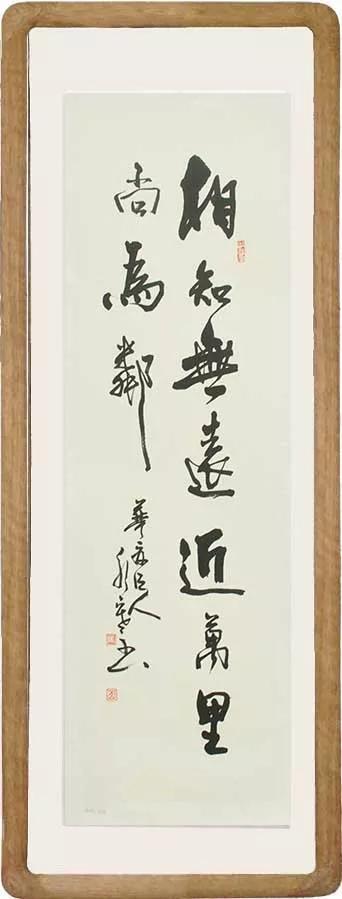 相知無遠近萬里
尚為鄰
華亭人